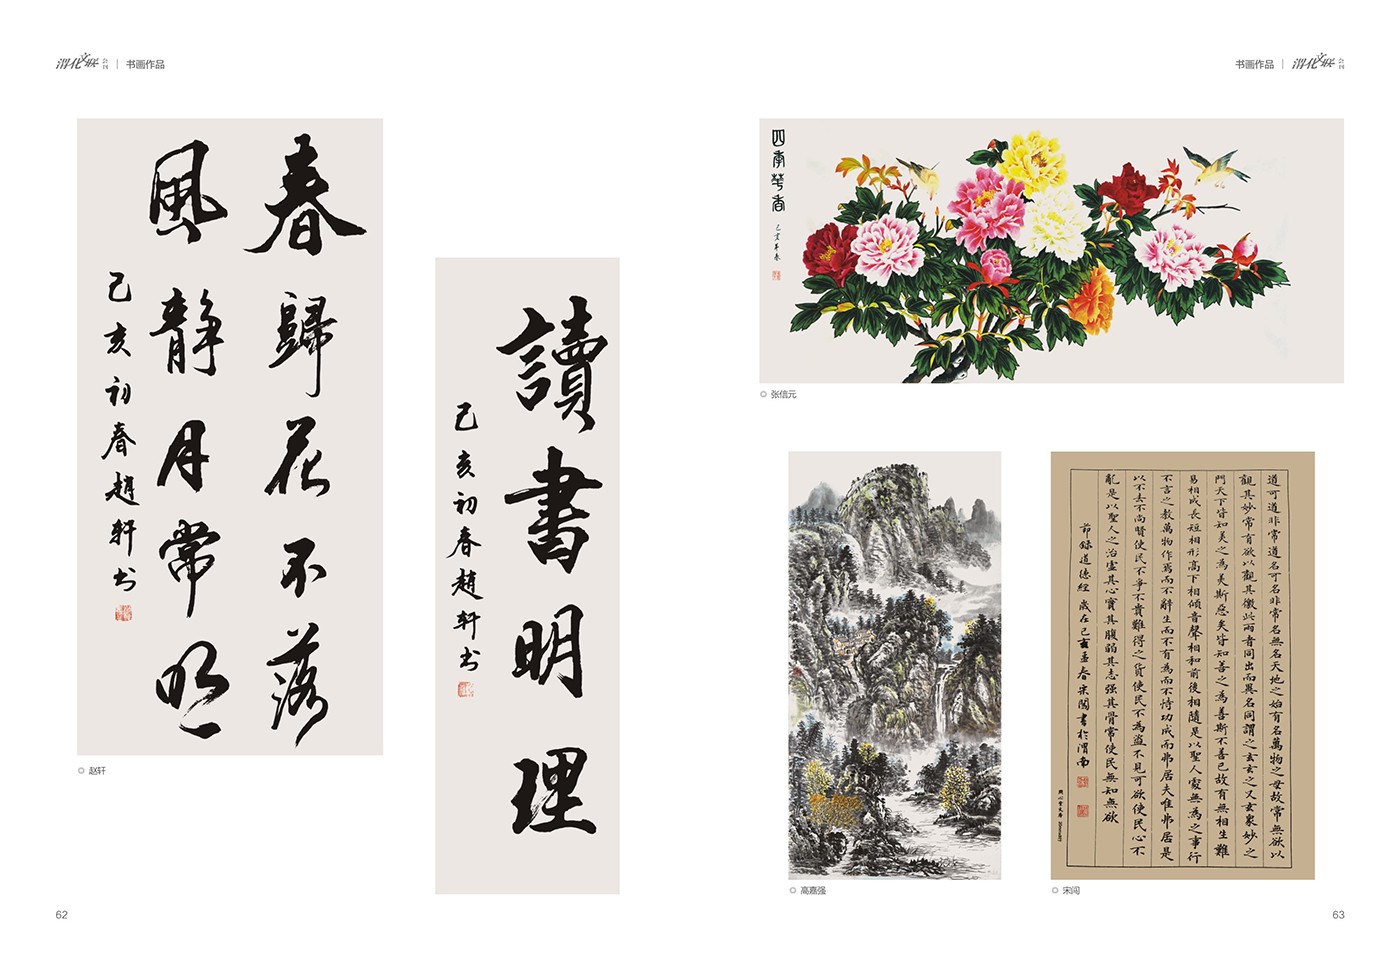 渭化文联 会刊 | 书画作品
春歸花不落
風静月常明
己亥初春趙轩书
◎ 赵轩
讀書明理
己亥初春趙轩书
62
书画作品 | 渭化文联 会刊
四季華香
己亥年春
◎ 张信元
◎ 高嘉强
道可道非常道名可名非常名無名天地之始有名萬物之母故常無欲以
觀其妙常有欲以觀其徼此兩者同出而異名同謂之玄玄之又玄衆妙之
門天下皆知美之為美斯惡矣皆知善之為善斯不善已故有無相生難
易相成長短相形高下相傾音聲相和前後相隨是以聖人處無為之事行
不言之教萬物作焉而不辭生而不有為而不恃功成而弗居夫唯弗居是
以不去不尚賢使民不爭不貴難得之貨使民不為盗不見可欲使民心不
亂是以聖人之治虛其心實其腹弱其志强其骨常使民無知無欲
節録道德經 歲在己亥孟春宋闯書於渭南
◎ 宋闯
63